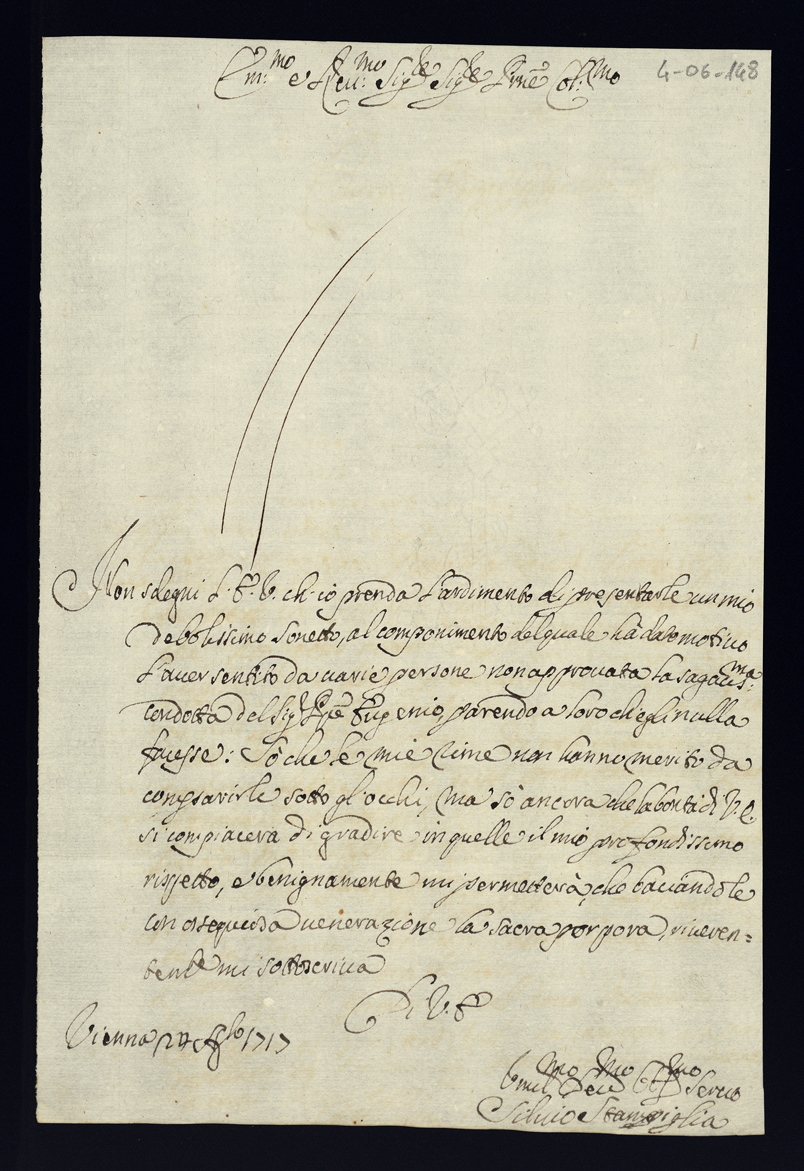 Em:mo e Reu:mo Sig.re Sig.re P.rone Col:mo
4-06-148
Non sdegni l'E.V. ch'io prenda l'ardimento di presentarle un mio
debolissimo sonetto, al componimento del quale hà dato motiuo
l'auer sentito da uarie persone non approuata la sagacis:ma
condotta del Sig.r P.npe Eugenio, parendo a loro ch'egli nulla
facesse: Sò che le mie rime non hanno merito da
comparirle sotto gl'occhi, ma sò ancora che la bontà di V.E.
si compiacerà di gradire in quelle il mio profondissimo
rispetto, e benignamente mi permetterà, che baciandole
con ossequiosa uenerazione la sacra porpora, riueren=
tem.te mi sottoscriua
Di V.E.
Vienna Ag.to 1717
Umil.mo Deu.mo Obl.mo Seruo
Siluio Stampiglia